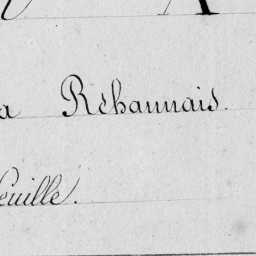 a Réhannais.
feuille.